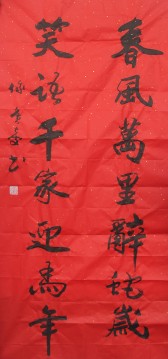 春風萬里辭蛇歲
笑語千家迎馬年